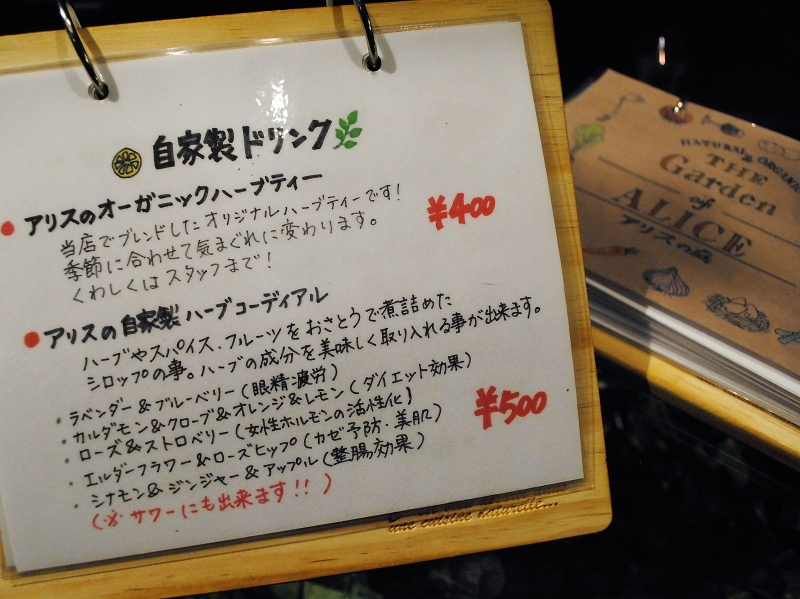 自家製ドリンク
アリスのオーガニックハーブティー
当店でブレンドしたオリジナルハーブティーです!
季節に合わせて気まぐれに変わります。
くわしくはスタッフまで!
¥400
アリスの自家製ハーブコーディアル
ハーブやスパイス、フルーツをおさとうで煮詰めた
シロップの事。ハーブの成分を美味しく取り入れる事が出来ます。
ラベンダー&ブルーベリー(眼精疲労)
カルダモン&クローブ&オレンジ&レモン(ダイエット効果)
ローズ&ストロベリー(女性ホルモンの活性化)
エルダーフラワー&ローズヒップ(カゼ予防・美肌)
シナモン&ジンジャー&アップル(整腸効果)
(※サワーにも出来ます!!)
¥500
une cuisine naturelle...
NATURAL & ORGANIC
THE
Garden
of
ALICE
アリスの森